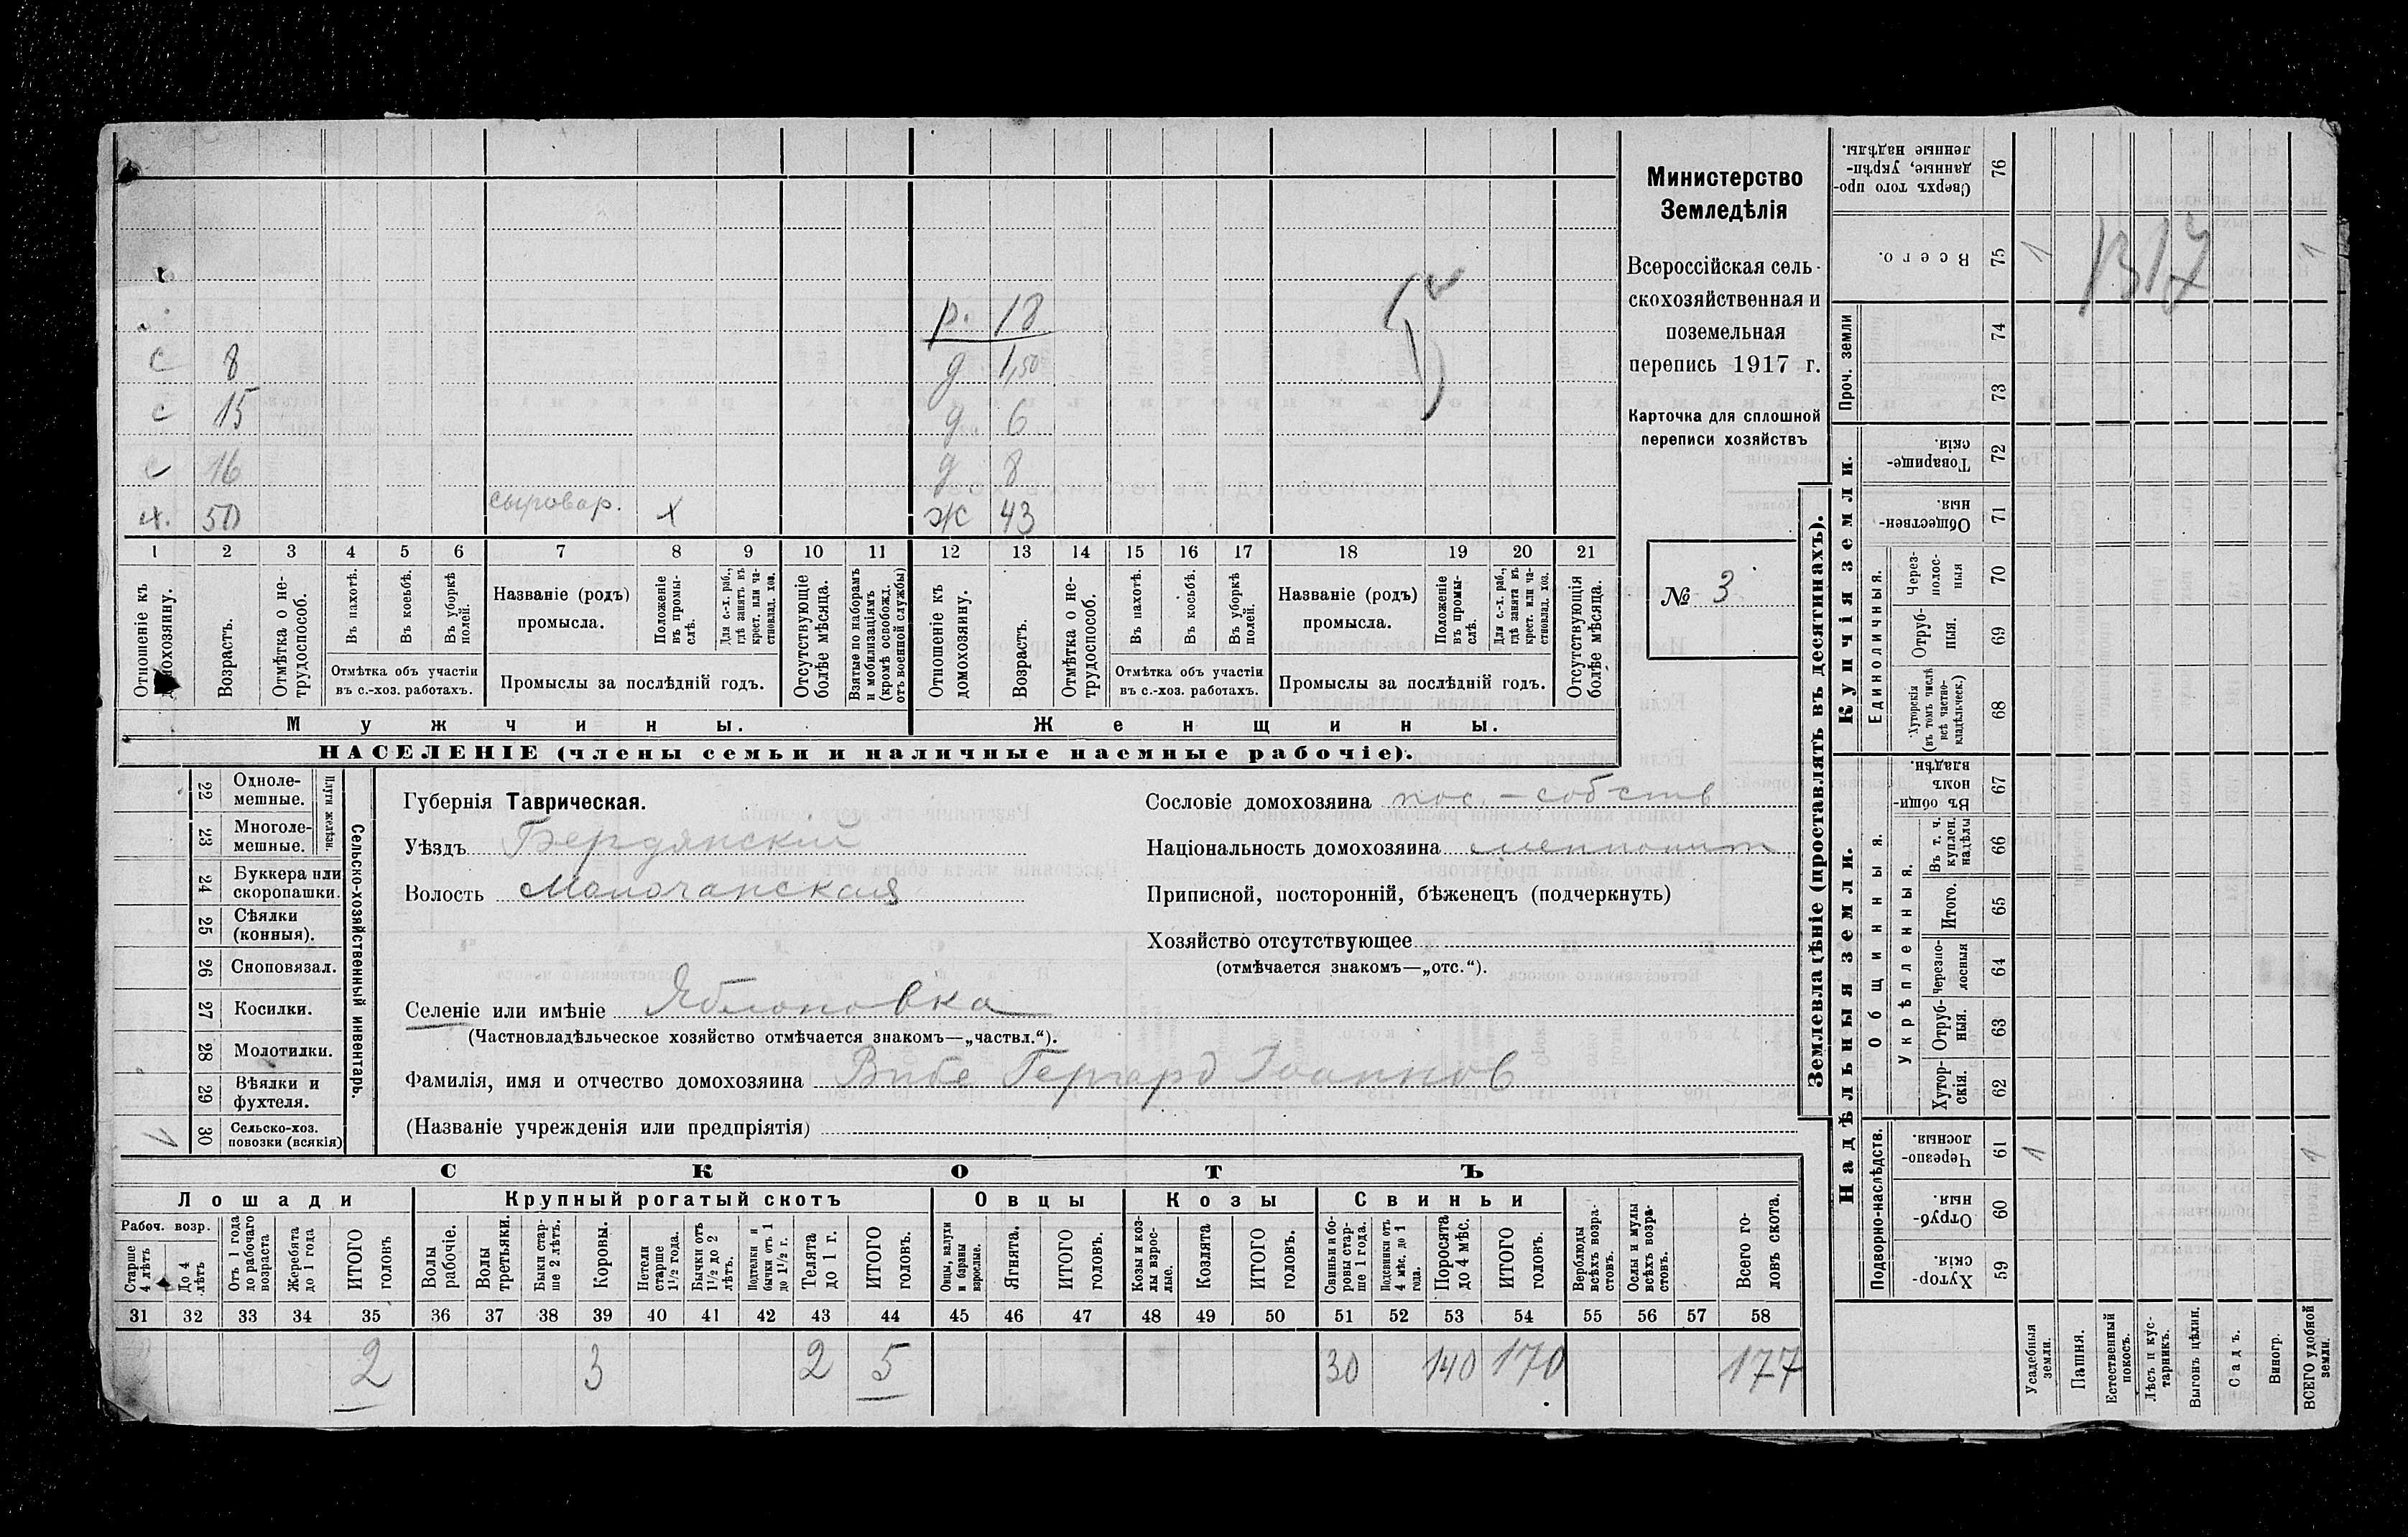 р. 18
с 8 д 1,50
с 15 д 6
с 16 д 8
х. 50 сыровар. х ж 43
1 2 3 4 5 6 7 8 9 10 11 12 13 14 15 16 17 18 19 20 21
Отношеніе къ домохозяину.
Возрастъ.
Отмѣтка о не-
трудоспособ.
Въ пахотѣ.
Въ косьбѣ.
Въ уборкѣ
полей.
Отмѣтка объ участіи
въ с.-хоз. работахъ.
Названіе (родъ)
промысла.
Положеніе
въ промы-
слѣ.
Для с.-х. раб.,
гдѣ занятъ въ
крест. или ча-
стновлад. хоз.
Промыслы за послѣдній годъ.
Отсутствующіе
болѣе мѣсяца.
Взятые по наборамъ
и мобилизаціямъ
(кромѣ освобожд.
отъ военной службы)
Отношеніе къ
домохозяину.
Возрастъ.
Отмѣтка о не-
трудоспособ.
Въ пахотѣ.
Въ косьбѣ.
Въ уборкѣ
полей.
Отмѣтка объ участіи
въ с.-хоз. работахъ.
Названіе (родъ)
промысла.
Положеніе
въ промы-
слѣ.
Для с.-х. раб.,
гдѣ занята въ
крест. или ча-
стновлад. хоз.
Промыслы за послѣдній годъ.
Отсутствующія
болѣе мѣсяца.
Мужчины.
Женщины.
НАСЕЛЕНІЕ (члены семьи и наличные наемные рабочіе).
Министерство
Земледѣлія
Всероссійская сель-
скохозяйственная и
поземельная
перепись 1917 г.
Карточка для сплошной
переписи хозяйствъ
№ 3
22 Одноле-
мешные.
23 Многоле-
мешные.
Плуги желѣзн.
24 Буккера или
скоропашки.
25 Сѣялки
(конныя).
26 Сноповязал.
27 Косилки.
28 Молотилки.
29 Вѣялки и
фухтеля.
30 Сельско-хоз.
повозки (всякія)
Сельско-хозяйственный инвентарь.
Губернія Таврическая.
Уѣздъ Бердянскій
Волость Молочанская
Селеніе или имѣніе Яблоновка
(Частновладѣльческое хозяйство отмѣчается знакомъ—„частвл.“).
Фамилія, имя и отчество домохозяина Вибе Гергард Іоаннов
(Названіе учрежденія или предпріятія)
Сословіе домохозяина пос. - собств
Національность домохозяина меннонит.
Приписной, посторонній, бѣженецъ (подчеркнуть)
Хозяйство отсутствующее
(отмѣчается знакомъ—„отс.“).
СКОТЪ
Лошади
Рабоч. возр.
Старше
4 лѣтъ
До 4
лѣтъ
Отъ 1 года
до рабочаго
возраста
Жеребята
до 1 года
ИТОГО
головъ
Крупный рогатый скотъ
Волы
рабочіе.
Волы
третьяки.
Быки стар-
ше 2 лѣтъ.
Коровы.
Нетели
старше
1½ года.
Бычки отъ
1½ до 2
лѣтъ.
Подтелки и
бычки отъ 1
до 1½ г.
Телята
до 1 г.
ИТОГО
головъ.
Овцы
Овцы, валухи
и бараны
взрослые.
Ягнята.
ИТОГО
головъ.
Козы
Козы и коз-
лы взрос-
лые.
Козлята
ИТОГО
головъ.
Свиньи
Свиньи и бо-
ровы стар-
ше 1 года.
Подсвинки отъ
4 мѣс. до 1
года.
Поросята
до 4 мѣс.
ИТОГО
головъ.
Верблюды
всѣхъ возра-
стовъ.
Ослы и мулы
всѣхъ возра-
стовъ.
Всего го-
ловъ скота.
31 32 33 34 35 36 37 38 39 40 41 42 43 44 45 46 47 48 49 50 51 52 53 54 55 56 57 58
2 3 2 5 30 140 170 177
Землевладѣніе (проставлять въ десятинахъ).
Сверхъ того про-
данные, укрѣп-
ленные надѣлы.
76
Всего.
75 1 1
1317
Проч. земли
74
73
Купчія земли.
Товарище-
скія.
72
Обществен-
ныя.
71
Единоличныя.
Через-
полос-
ныя
70
Отруб-
ныя.
69
Хуторскія
(въ томъ числѣ
всѣ частно-
владѣльческ.)
68
Надѣльныя земли.
Общинныя.
Въ общин-
номъ
владѣн.
67
Укрѣпленныя.
Въ т. ч.
куплен.
надѣлы
66
Итого.
65
Черезпо-
лосныя
64
Отруб-
ныя.
63
Хутор-
скія.
62
Подворно-наслѣдств.
Черезпо-
лосныя.
61 1 1
Отруб-
ныя.
60
Хутор-
скія.
59
Усадебныя
земли.
Пашня.
Естественный
покосъ.
Лѣсъ и кус-
тарникъ.
Выгонъ цѣлин.
Садъ.
Виногр.
ВСЕГО удобной
земли.